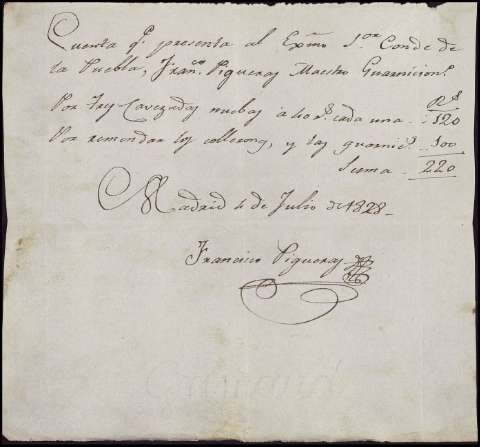 Cuenta q.e presenta al Exmo S.or Conde de
la Puebla, Fran.co Pigueras Maestro Guarnicion.o
R.s
Por Trej Cavezadas nuebas á 40 r.s cada una .. 120
Por remendar los collerong, y las guarnic.s . 100
Suma . 220
Madrid 4 de Julio de 1828
Francisco Pigueras